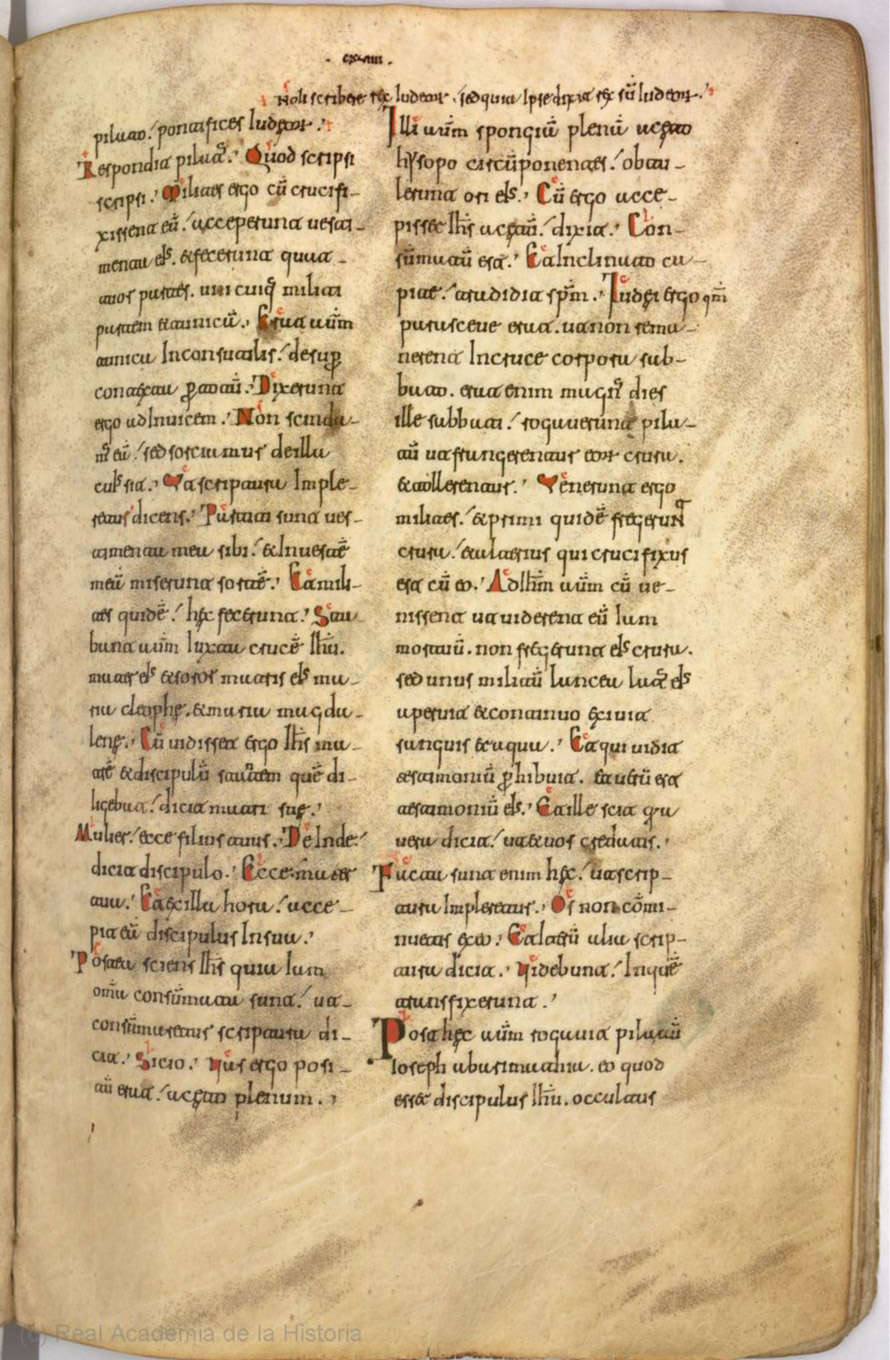 Noli scribere rex Iudeor. sed quia Ipse dixit rex sū Iudeor.
pilato. pontifices Iudeor.
Respondit pilat'. Quod scripsi
scripsi. Milites ergo cū crucifi-
xissent eū. acceperunt uesti-
menta eIs. et fecerunt quat-
tuor partes. unicuiq militi
partem et tunicā. Erat aūm
tunica Inconsutilis. desup
contexta p totū. Dixerunt
ergo ad Inuicem. Non scinda-
m' eā. sed sortiamur de illa
cuIs sit. Vt scriptura Imple-
retur dicens. Partiti sunt ues-
timenta mea sibi. et In uestē
meā miserunt sortē. Et mili-
tes quidē. hec fecerunt. Sta-
bant aūm Iuxta crucē Ihū.
mater eIs et soror matris eIs ma-
ria cleophe. et maria magda-
lene. Cū uidisset ergo Ihs ma-
trē et discipulū stantem quē di-
ligebat. dicit matri sue.
Mulier. ecce filius tuus. DeInde.
dicit discipulo. Ecce mater
tua. Et ex illa hora. acce-
pit eā discipulus In sua.
Postea sciens Ihs quia Iam
omīa consūmata sunt. ut
consūmaretur scriptura di-
cit. Sicio. Vas ergo posi-
tū erat. aceto plenum.
Illi aūm spongiā plenā aceto
hysopo circūponentes. obtu-
lerunt ori eIs. Cū ergo acce-
pisset Ihs acetū. dixit. Con-
sūmatū est. Et Inclinato ca-
pite. tradidit spm. Iudei ergo qm
parasceue erat. ut non rema-
nerent In cruce corpora sab-
bato. erat enim magn' dies
ille sabbati. rogauerunt pila-
tū ut frangerentur eor crura.
et tollerentur. Venerunt ergo
milites. et primi quidē fregerunt
crura. et alterius qui crucifixus
est cū eo. Ad Ihm aūm cū ue-
nissent ut uiderent eū Iam
mortuū. non fregerunt eIs crura.
sed unus militū lancea lat' eIs
aperuit et continuo exiuit
sanguis et aqua. Et qui uidit
testimoniū phibuit. et uerū est
testimoniū eIs. Et ille scit qa
uera dicit. ut et uos credatis.
Facta sunt enim hec. ut scrip-
tura Impleretur. Os non cōmi-
nuetis ex eo. Et alterū alia scrip-
tura dicit. Videbunt. In quē
transfixerunt.
Post hec aūm rogauit pilatū
Ioseph ab arimathia. eo quod
esset discipulus Ihū. occultus